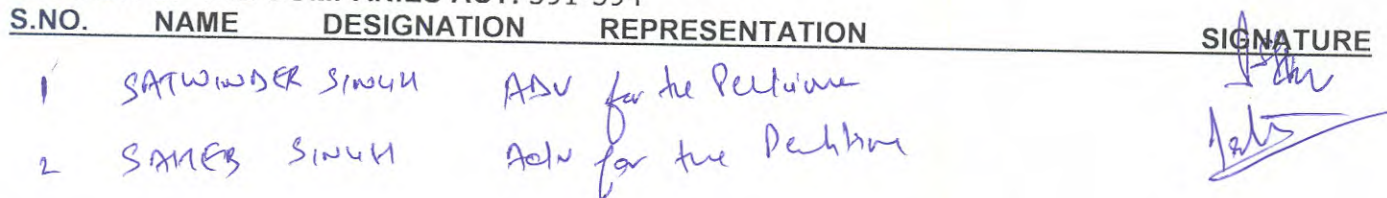 COMPANIES ACT: 391-394
S.NO. NAME DESIGNATION REPRESENTATION SIGNATURE
1 SATWINDER SINGH ADV for the Petitioner
2 SAHEB SINGH Adv for the Petitioner